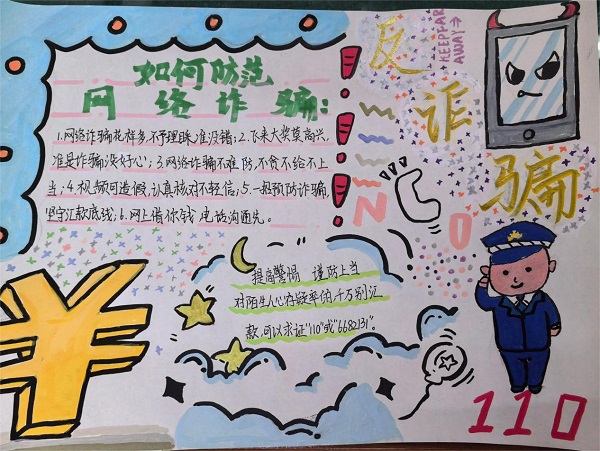 如何防范
网络诈骗:
1.网络诈骗花样多,不予理睬准没错;2.飞来大奖莫高兴,
准是诈骗没好心;3.网络诈骗不难防,不贪不给不上
当;4.视频可造假,认真核对不轻信;5.一热预防诈骗,
坚守汇款底线;6.网上借你钱,电话沟通先。
反诈骗
KEEP FAR
AWAY
NO
提高警惕 谨防上当
对陌生人心存疑率的,千万别汇
款,可以求证"110"或"6682131"。
110